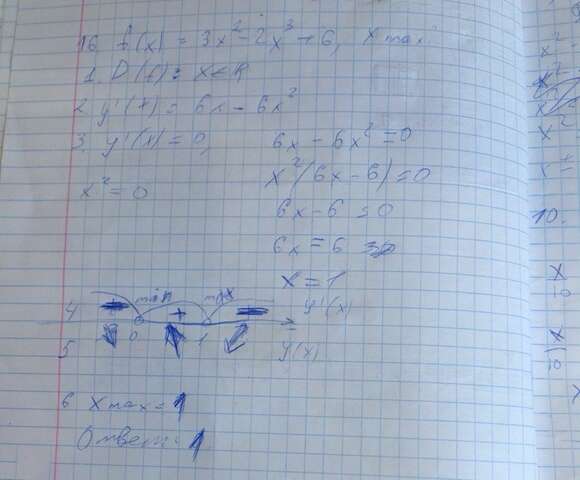 16. f(x) = 3x² - 2x³ + 6, x max
1. D(f) = x ∈ R
2. y'(x) = 6x - 6x²
3. y'(x) = 0,
6x - 6x² = 0
x²(6x - 6) = 0
x² = 0
6x - 6 = 0
6x = 6
x = 1
4 min + max y'(x)
0 1
5 y(x)
6 x max = 1
Ответ: 1
x²
x²
10.
x
10
x
10